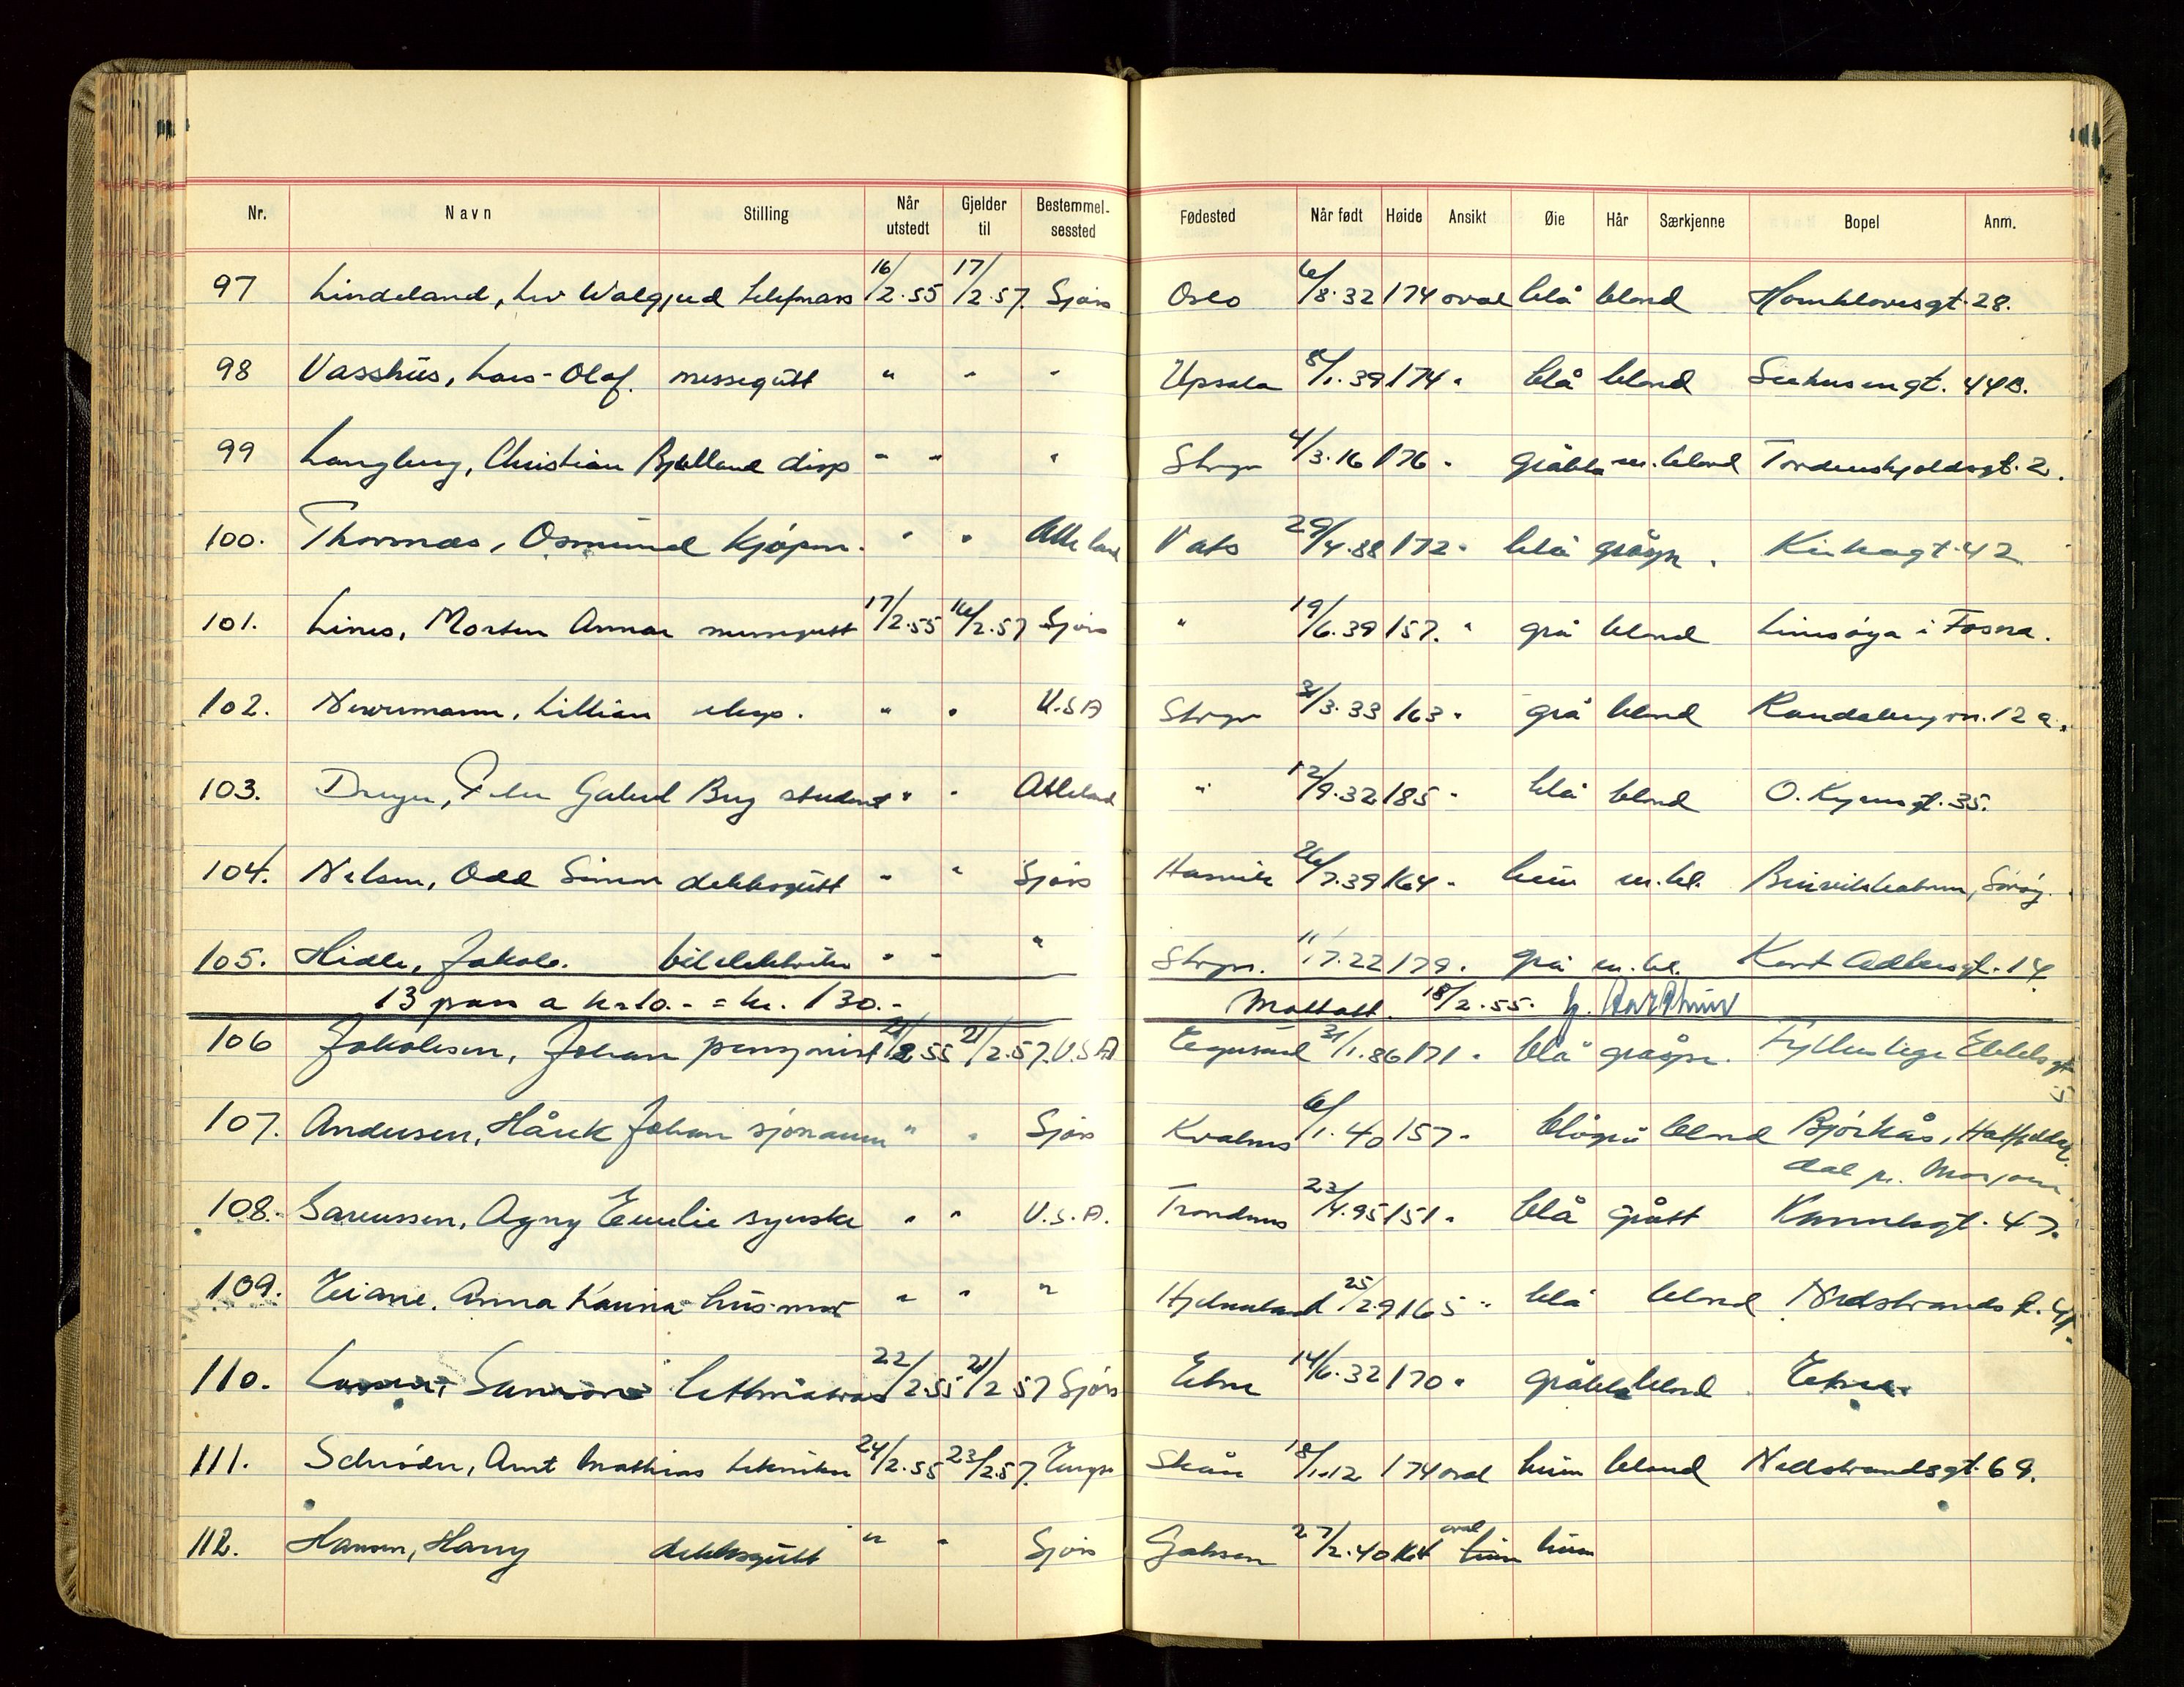 Nr. Navn Stilling Når utstedt Gjelder til Bestemmelsessted Fødested Når født Høide Ansikt Øie Hår Særkjenne Bopel Anm.
97 Lindeland, Liv Walgjerd telefonass 16/2.55 17/2.57. Sjøis Oslo 6/8.32 174 oval blå blond Hornklovesgt. 28.
98 Vasshus, Lars-Olof. messegutt " " " Upsala 8/1.39 174 " blå blond Seehusengt. 44B.
99 Langberg, Christian Bjelland disp " " " Stvgr 4/3.16 176 " gråblå m.blond Tordenskjoldsgt. 2.
100. Thormas, Osmund kjøpm. " " Alle land Vats 29/4.88 172 " blå gråspr. Kirkegt. 42
101. Lines, Morten Annar messegutt 17/2.55 16/2.57 Sjøis " 19/6.39 157. " grå blond Linesøya i Fosna.
102. Newermann, Lillian eksp. " " U.S.A Stvgr 31/3.33 163 " grå blond Randabergvn. 12 a.
103. Dreyer, Peter Gabriel Bug student " " Alleland " 12/9.32 185 " blå blond O. Kyrresgt. 35.
104. Nelsen, Odd Simon dekksgutt " " Sjøis Hasvik 26/7.39 164 " brun m.bl. Breivikbotn, Sørøy.
105. Hidle, Jakob. bilelektriker " " " Stvgr. 11/7.22 179. grå m.bl. Kort Adelersgt. 14
13 pass a kr 10.- = kr. 130.- Mottatt. 18/2.55.
106 Jakobsen, Johan pensjonist 21/2.55 21/2.57. U.S.A Egersund 31/1.86 171 " blå gråspr. Eckledsgt 5
107. Andersen, Hårek Johan sjømann " " Sjøis Kvalnes 6/1.40 157 " blågrå blond Bjørkås, Hatfjelld.
dal pr. Mosjøen
108. Sørenssen, Agny Emelie syerske " " U.S.A. Trondnes 23/4.95 151 " blå grått 47.
109. Eiane, Anna Karina husmor " " " Hjelmeland 25/2.9 165 " blå blond Nedstrands g. 41.
110. lettmatros 22/2.55 21/2 57 Sjøis Etne 14/6.32 170 " gråblå blond Etne.
111. Schrøder, Arnt Mathias tekniker 24/2.55 23/2.57. Europa Skåre 18/1.12 174 oval brun blond Nedstrandsgt. 69.
112. Hansen, Harry dekksgutt " " Sjøis 27/2.40 164 oval brun brun